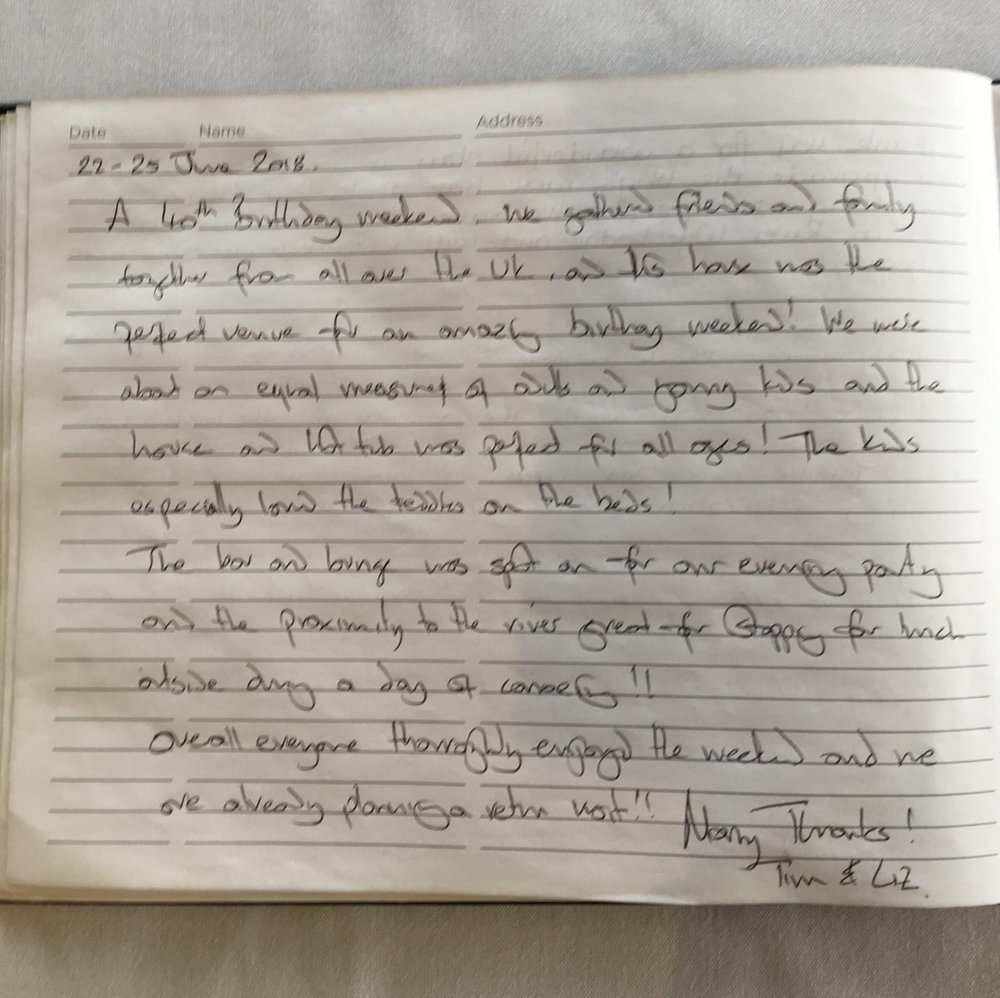 Date Name Address
22-25 June 2018.
A 40th Birthday weekend. We gathered friends and family
together from all over the UK, and this house was the
perfect venue for an amazing birthday weekend! We were
about an equal measures of adults and young kids and the
house and hot tub was perfect for all ages! The kids
especially loved the teddies on the beds!
The bar and lounge was spot on for our evening party
and the proximity to the river great for stopping for lunch
outside during a day of canoeing!!
Overall everyone thoroughly enjoyed the weekend and we
are already planning a return visit!! Many Thanks!
Tim & Liz.